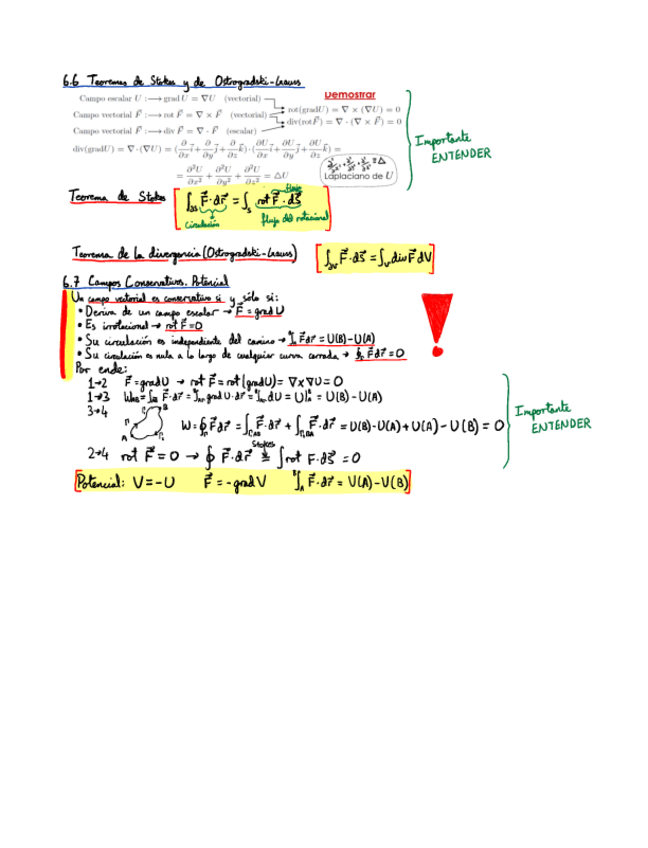 6.6 Teoremas de Stokes y de Ostrogradski-Gauss
Demostrar
Campo escalar U : ⟶ grad U = ∇U (vectorial)
rot(gradU) = ∇ × (∇U) = 0
Campo vectorial F⃗ : ⟶ rot F⃗ = ∇ × F⃗ (vectorial)
div(rotF⃗) = ∇ · (∇ × F⃗) = 0
Campo vectorial F⃗ : ⟶ div F⃗ = ∇ · F⃗ (escalar)
Importante
ENTENDER
div(gradU) = ∇ · (∇U) = (∂/∂x i⃗ + ∂/∂y j⃗ + ∂/∂z k⃗) · (∂U/∂x i⃗ + ∂U/∂y j⃗ + ∂U/∂z k⃗) =
= ∂²U/∂x² + ∂²U/∂y² + ∂²U/∂z² = △U
∂²/∂x² + ∂²/∂y² + ∂²/∂z² = △
Laplaciano de U
Teorema de Stokes
flujo
∫∂S F⃗·dr⃗ = ∫S rot F⃗·dS⃗
Circulación
flujo del rotacional
Teorema de la divergencia (Ostrogradski-Gauss)
∫∂V F⃗·dS⃗ = ∫V div F⃗ dV
6.7 Campos Conservativos. Potencial
Un campo vectorial es conservativo si y sólo si:
• Deriva de un campo escalar → F⃗ = grad U
• Es irrotacional → rot F⃗ = 0
• Su circulación es independiente del camino → ∫_A^B F⃗ dr⃗ = U(B) - U(A)
• Su circulación es nula a lo largo de cualquier curva cerrada → ∮ F⃗ dr⃗ = 0
!
Por ende:
1→2 F⃗ = grad U → rot F⃗ = rot(grad U) = ∇×∇U = 0
1→3 W_AB = ∫_AB F⃗·dr⃗ = ∫_AB grad U·dr⃗ = ∫_AB dU = U|_A^B = U(B) - U(A)
3→4
A B
W = ∮ F⃗ dr⃗ = ∫ F⃗·dr⃗ + ∫ F⃗·dr⃗ = U(B) - U(A) + U(A) - U(B) = 0
Importante
ENTENDER
Stokes
2→4 rot F⃗ = 0 → ∮ F⃗·dr⃗ = ∫ rot F·dS⃗ = 0
Potencial: V = -U F⃗ = -grad V ∫_A^B F⃗·dr⃗ = V(A) - V(B)